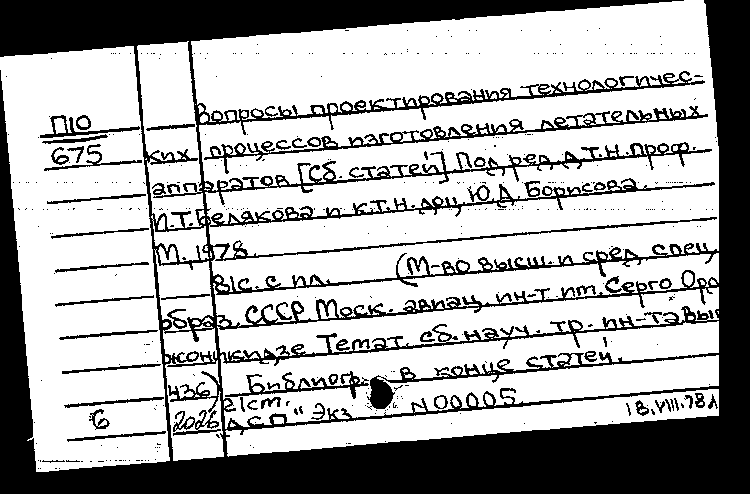 Вопросы проектирования технологичес-
П10
675
ких процессов изготовления летательных
аппаратов [Сб. статей] Под ред. д.т.н. проф.
И.Т. Белякова и к.т.н. доц. Ю.Д. Борисова.
М., 1978.
81с. с ил. (М-во высш. и сред. спец.
образ. СССР. Моск. авиац. ин-т им. Серго Орд
жоникидзе. Темат. сб. науч. тр. ин-та. Вып
436) Библиогр. в конце статей.
21ст.
6 2026 "ДСП" Экз N00005.
18.VIII.78